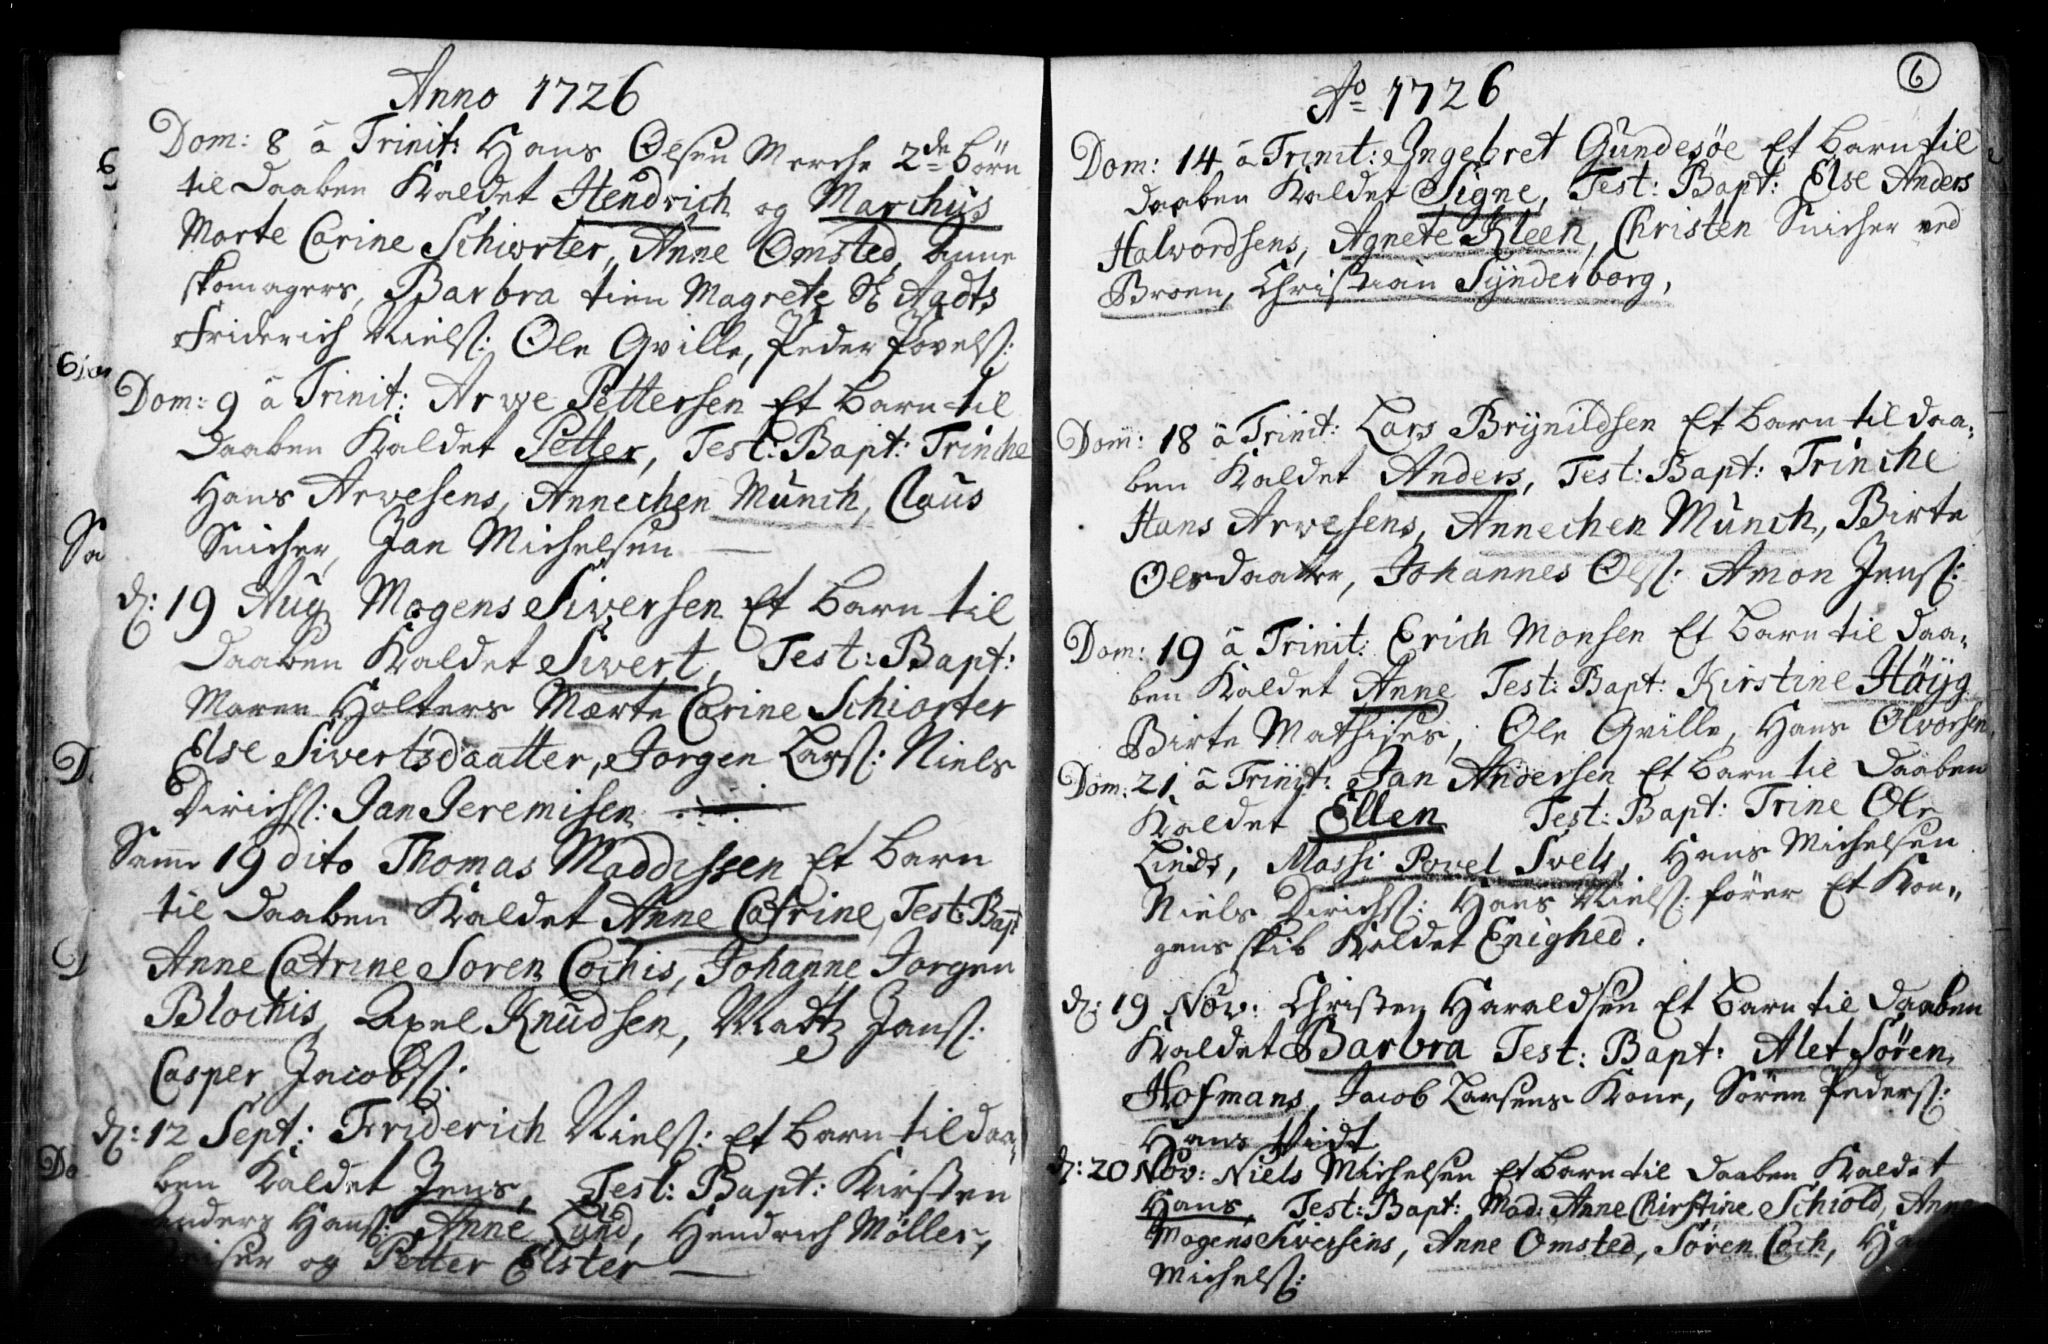 Anno 1726
Dom: 8 â Trinit: Hans Olsen Merche 2de börn
til daaben kaldet Hendrich og Marchus
Marte Carine Schiorter, Anne Omsted, Anne
skomagers, Barbra tien Magrete St Aadts
Friderich Niels: Ole Qville, Peder Povels:
Dom: 9 â Trinit: Arwe Pettersen Et barn til
daaben kaldet Petter, Test: Bapt: Trinche
Hans Arvesens, Annechen Munch, Claus
Snicher, Jan Michelsen
d: 19 Aug Mogens Siversen Et barn til
daaben kaldet Sivert, Test: Bapt:
Maren Holters Marte Carine Schiorter
Else Sivertsdaatter, Jorgen Lars: Niels
Dirichs: Jan Jeremisen
Samme 19 dito Thomas Maddissen Et barn
til daaben kaldet Anne Catrine, Test: Bapt
Anne Catrine Soren Cochis, Johanne Jorgen
Blochis, Axel Knudsen, Mattz Jans:
Casper Jacobs:
d: 12 Sept: Friderich Niels: Et barn til daa-
ben kaldet Jens, Test: Bapt: Kirsten
Anders Hans: Anne Lund, Hendrich Möller,
og Petter Elster
6
Ao 1726
Dom: 14 â Trinit: Ingebret Gundesöe Et barn til
daaben kaldet Signe, Test: Bapt: Else Anders
Halvordsens, Agnete Kleen, Christen Snicher ved
Broen, Christian Synderborg,
Dom: 18 â Trinit: Lars Brynildsen Et barn til daa-
ben kaldet Anders, Test: Bapt: Trinche
Hans Arvesens, Annechen Munch, Birte
Olesdaatter, Johannes Ols: Amon Jens:
Dom: 19 â Trinit: Erich Monsen Et barn til daa-
ben kaldet Anne Test: Bapt: Kirstine Höyg
Birte Mathises, Ole Qville, Hans Olvorsen,
Dom: 21 â Trinit: Jan Andersen Et barn til daaben
kaldet Ellen Test: Bapt: Trine Ole
Linds, Massi Povel Svels, Hans Michelsen
Niels Dirichs: Hans Niels: förer Et Kon-
gens skib kaldet Enighed.
d: 19 Nov: Christen Haraldsen Et barn til daaben
kaldet Barbra Test: Bapt: Alet Sören
Hofmans, Jacob Larsens Kone, Sören Peders:
Hans
d: 20 Nov: Niels Michelsen Et barn til daaben kaldet
Hans, Test: Bapt: Mad: Anne Chirstine Schiold, Anne
Mogens Siversens, Anne Omsted, Sören Coch,
Michels: